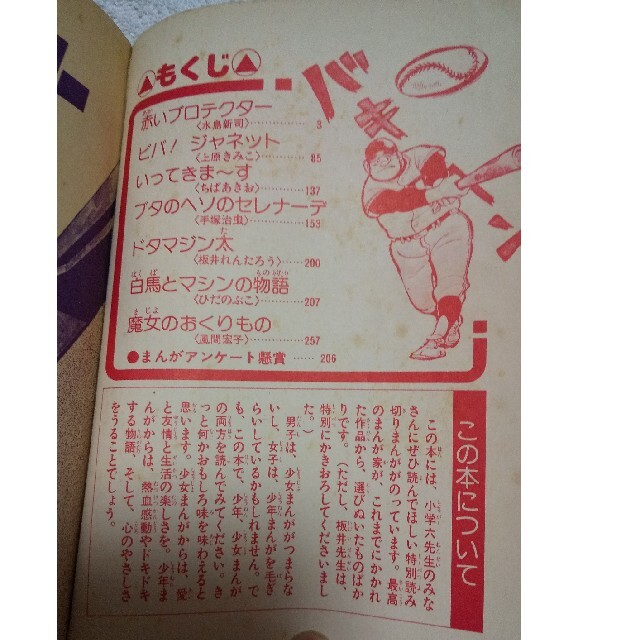 もくじ
赤いプロテクター
〈水島新司〉…………… 3
ビバ！ ジャネット
〈上原きみこ〉………… 85
いってきま〜す
〈ちばあきお〉………… 137
ブタのヘソのセレナーデ
〈手塚治虫〉…………… 153
ドタマジン太
〈板井れんたろう〉…… 200
白馬とマシンの物語
〈ひだのぶこ〉………… 207
魔女のおくりもの
〈風間宏子〉…………… 257
●まんがアンケート懸賞 …… 206
バキーン
この本について
この本には、小学六先生のみな
さんにぜひ読んでほしい特別読み
切りまんががのっています。最高
のまんが家が、これまでにかかれ
た作品から、選びぬいたものばか
りです。（ただし、板井先生は、
特別にかきおろしてくださいまし
た。）
男子は、少女まんががつまらな
いし、女子は、少年まんがを毛ぎ
らいしているかもしれません。で
も、この本で、少年、少女まんが
の両方を読んでみてください。き
っと何かおもしろ味を味わえると
思います。少女まんがからは、愛
と友情と生活の楽しさを。少年ま
んがからは、熱血感動やドキドキ
する物語、そして、心のやさしさ
をうることでしょう。